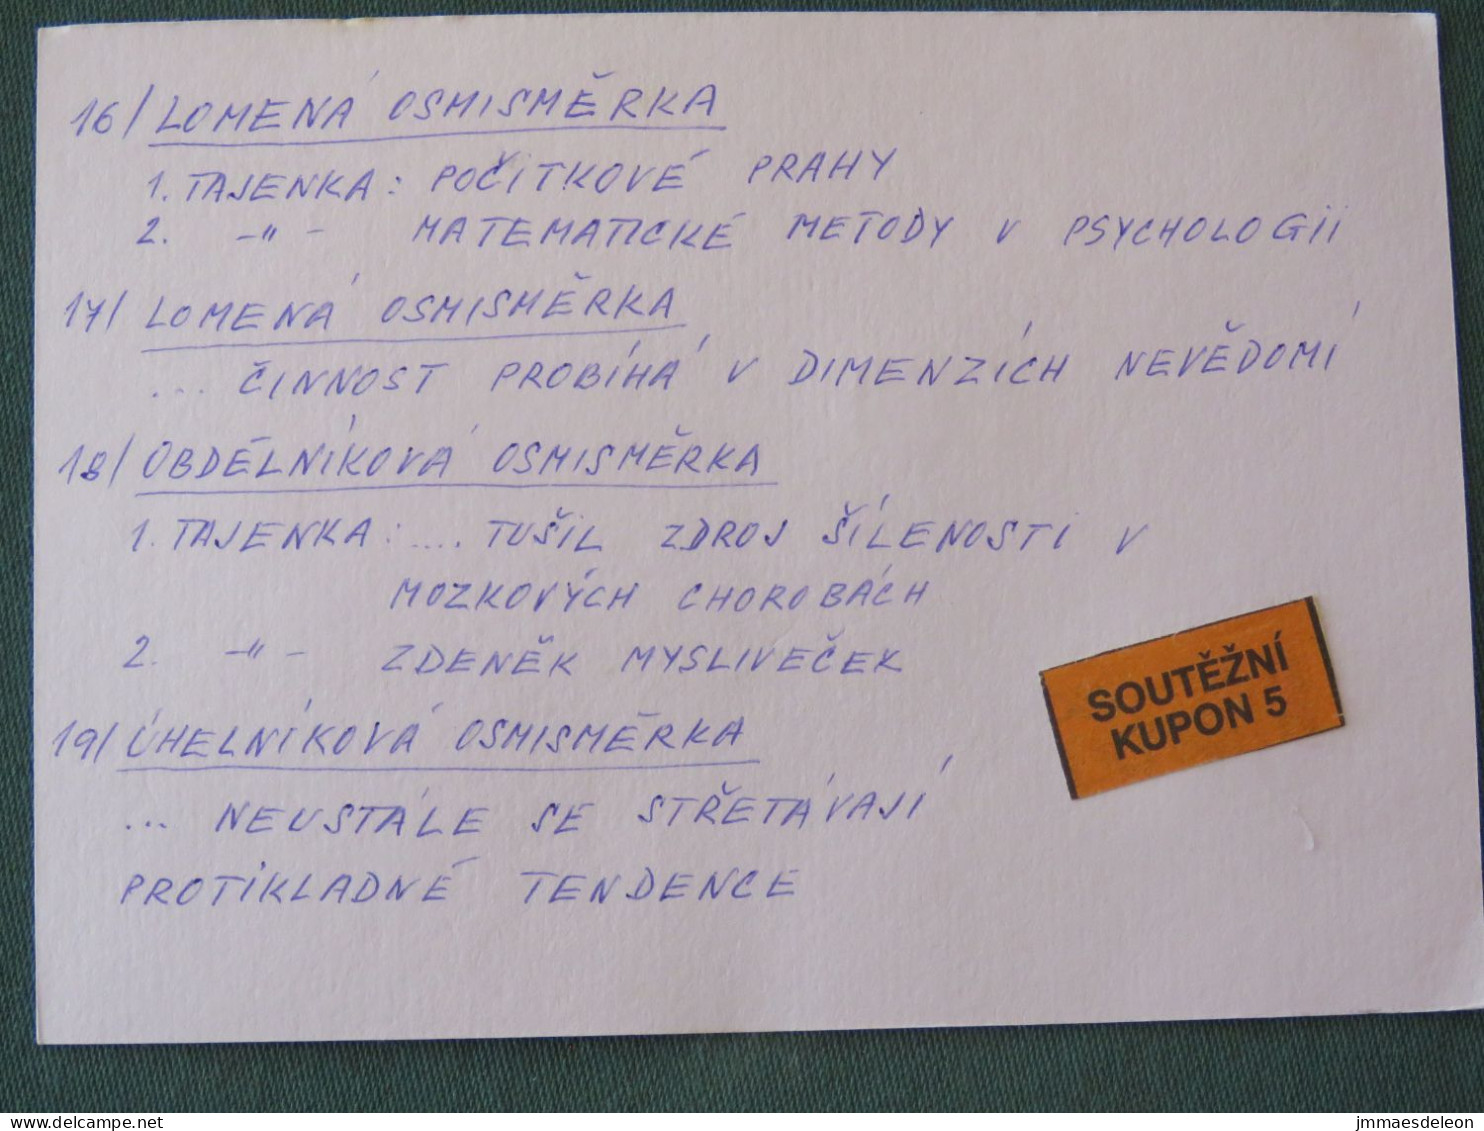 16/ LOMENÁ OSMISMĚRKA
1. TAJENKA: POČITKOVÉ PRAHY
2. -"- MATEMATICKÉ METODY V PSYCHOLOGII
17/ LOMENÁ OSMISMĚRKA
... ČINNOST PROBÍHÁ V DIMENZÍCH NEVĚDOMÍ
18/ OBDÉLNÍKOVÁ OSMISMĚRKA
1. TAJENKA: .... TUŠIL ZDROJ ŠÍLENOSTI V
MOZKOVÝCH CHOROBÁCH
2. -"- ZDENĚK MYSLIVEČEK
SOUTĚŽNÍ
KUPON 5
19/ ÚHELNÍKOVÁ OSMISMĚRKA
... NEUSTÁLE SE STŘETÁVAJÍ
PROTIKLADNÉ TENDENCE
www.delcampe.net
jmmaesdeleon